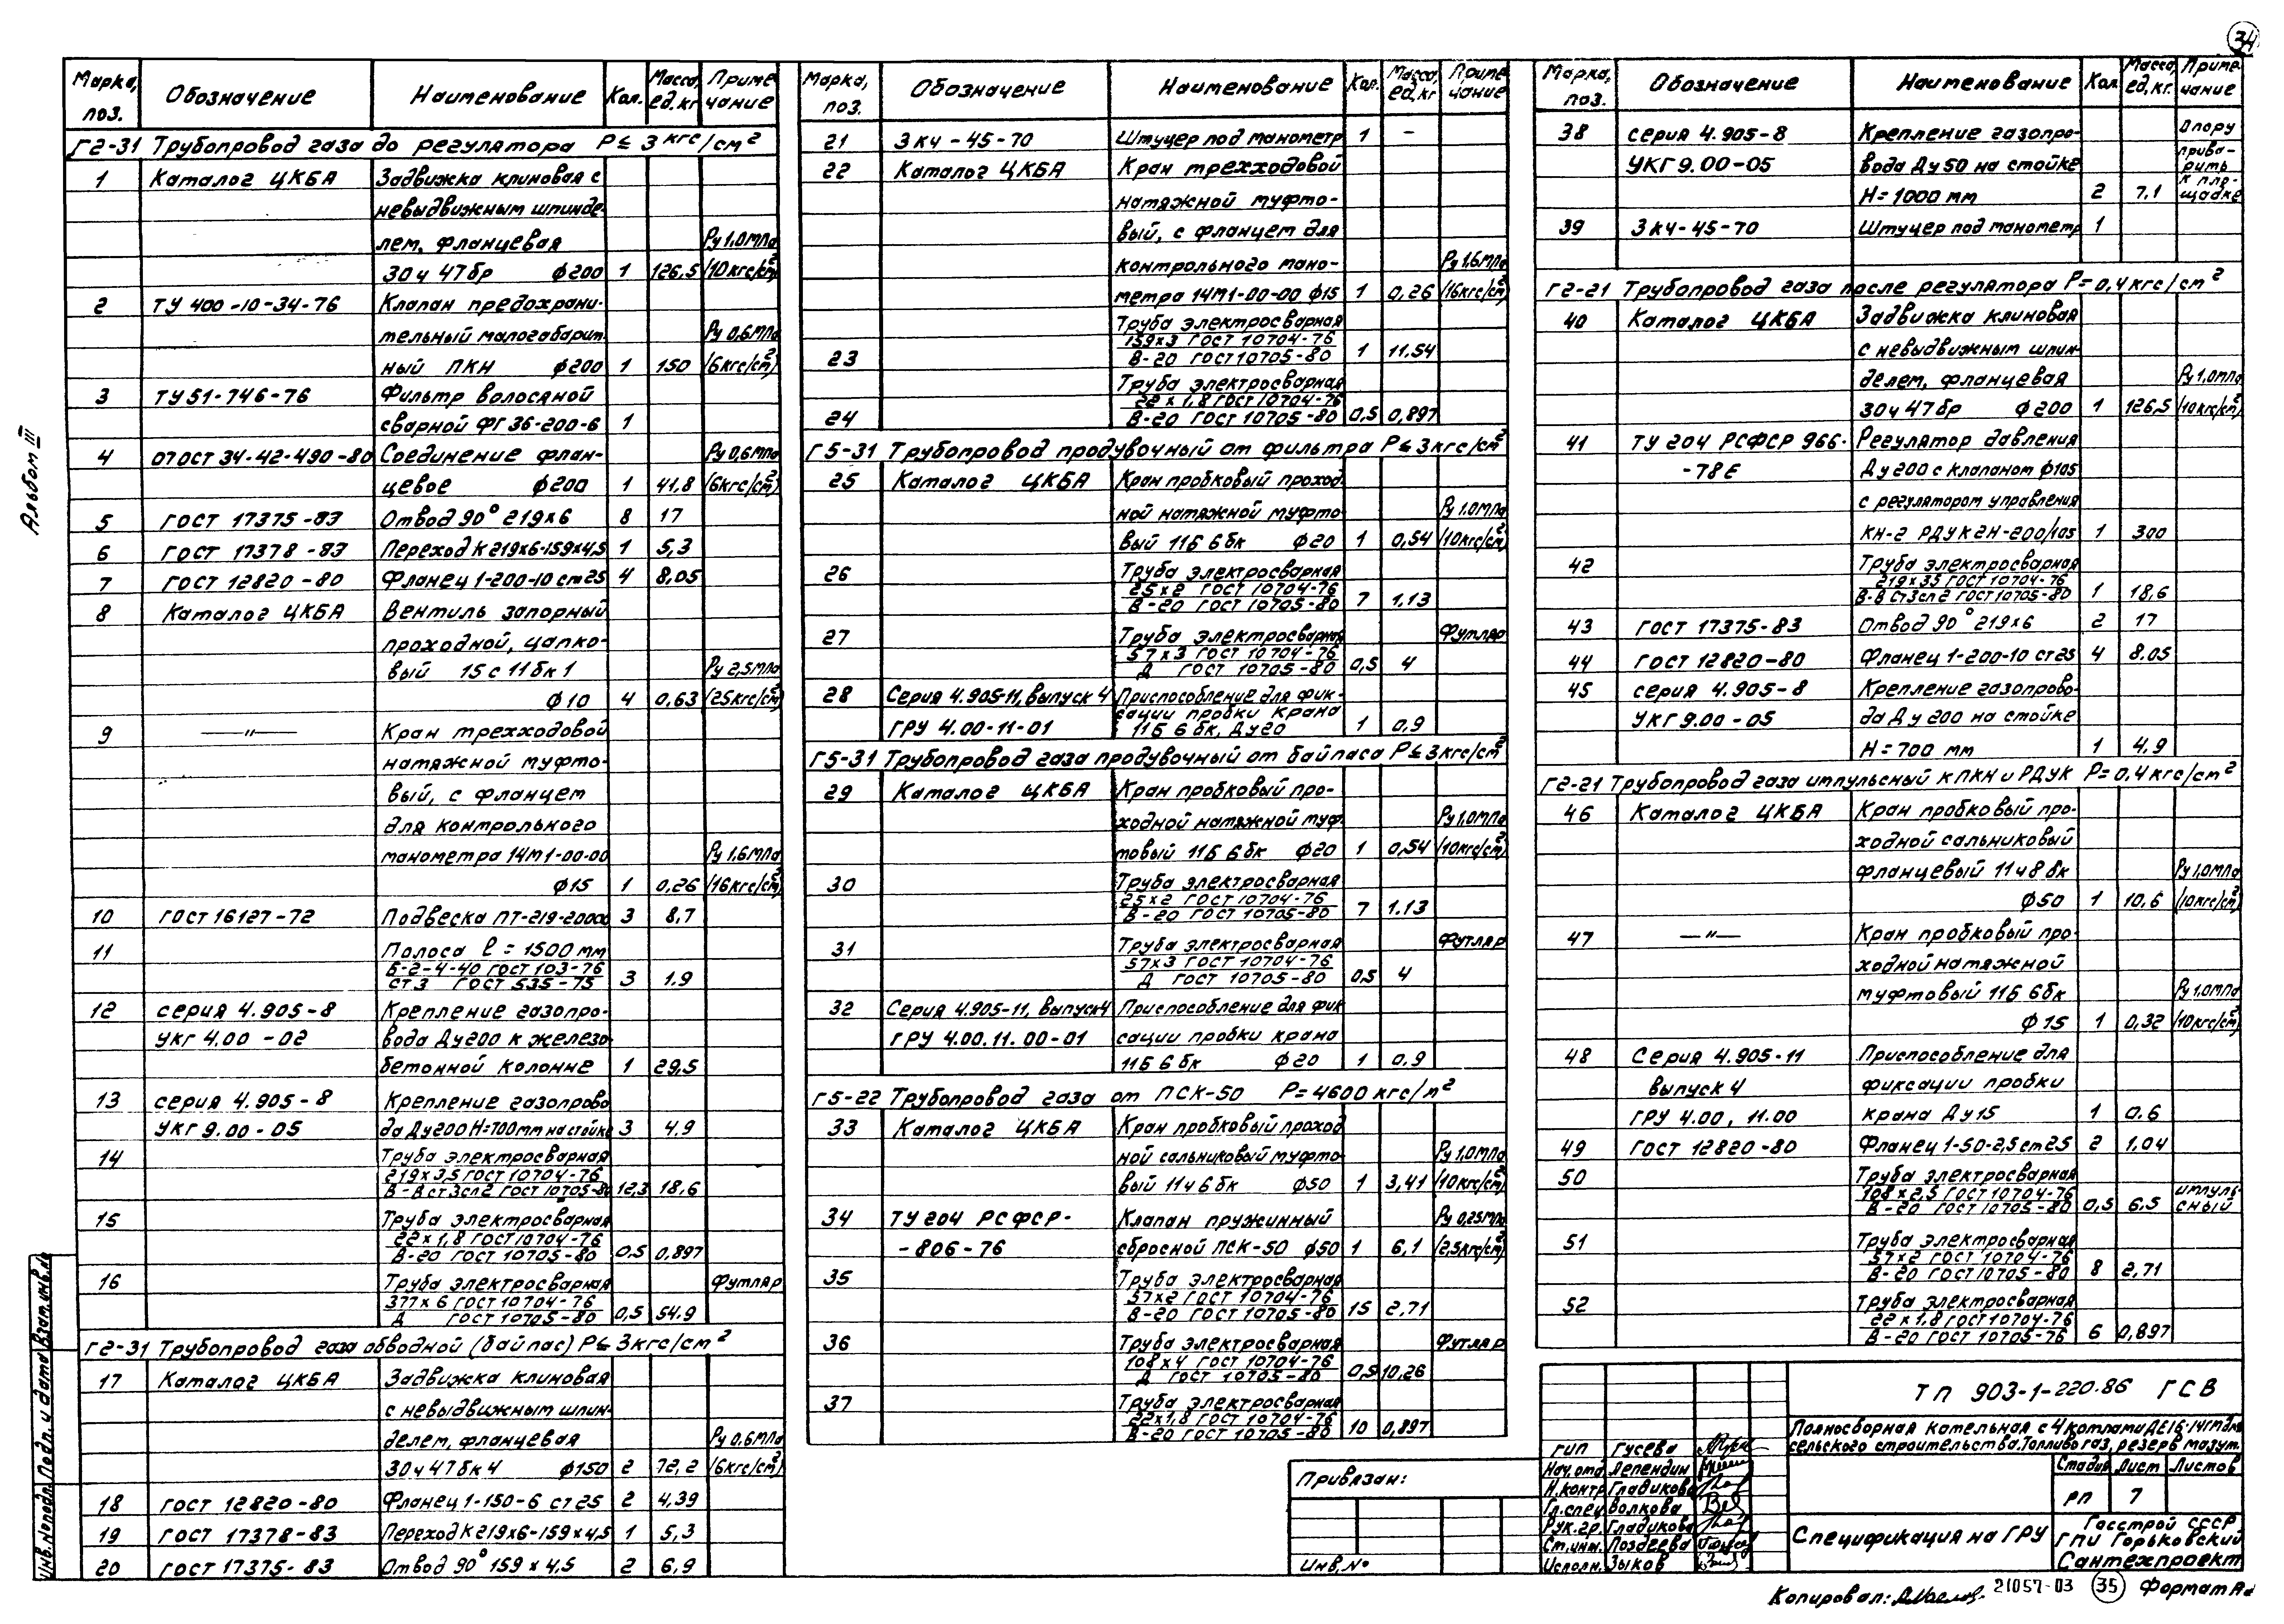 34
Альбом III
Марка, поз. Обозначение Наименование Кол. Масса, ед, кг Примечание
Г2-31 Трубопровод газа до регулятора P ≤ 3 кгс/см²
1 Каталог ЦКБА Задвижка клиновая с
невыдвижным шпинде-
лем, фланцевая Ру 1,0 МПа
30ч 47бр ф200 1 126,5 (10кгс/см²)
2 ТУ 400-10-34-76 Клапан предохрани-
тельный малогабарит-
Ру 0,6 МПа
ный ПКН ф200 1 150 (6кгс/см²)
3 ТУ51-746-76 Фильтр волосяной
сварной ФГ36-200-6 1
4 ОТ ОСТ 34-42-490-80 Соединение флан- Ру 0,6 МПа
цевое ф200 1 41,8 (6кгс/см²)
5 ГОСТ 17375-83 Отвод 90° 219х6 8 17
6 ГОСТ 17378-83 Переход К219х6-159х4,5 1 5,3
7 ГОСТ 12820-80 Фланец 1-200-10 ст25 4 8,05
8 Каталог ЦКБА Вентиль запорный
проходной, цапко-
вый 15с 11бк1 Ру 2,5 МПа
ф10 4 0,63 (25кгс/см²)
9 —"— Кран трехходовой
натяжной муфто-
вый, с фланцем
для контрольного
манометра 14М1-00-00 Ру 1,6 МПа
ф15 1 0,26 (16кгс/см²)
10 ГОСТ 16127-72 Подвеска ПТ-219-2000 3 8,7
11 Полоса ℓ = 1500 мм
Б-2-4-40 ГОСТ 103-76
ст.3 ГОСТ 535-75 3 1.9
12 серия 4.905-8 Крепление газопро-
УКГ 4.00-02 вода Ду200 к железо-
бетонной колонне 1 29,5
13 серия 4.905-8 Крепление газопрово
УКГ 9.00-05 да Ду200 Н=700мм на стойке 3 4.9
14 Труба электросварная
219х3,5 ГОСТ 10704-76
В-В ст3сп2 ГОСТ 10705-80 12,3 18.6
15 Труба электросварная
22х1,8 ГОСТ 10704-76
В-20 ГОСТ 10705-80 0,5 0,897
16 Труба электросварная Футляр
377х6 ГОСТ 10704-76
Д ГОСТ 10705-80 0,5 54.9
Г2-31 Трубопровод газа обводной (байпас) P ≤ 3кгс/см²
17 Каталог ЦКБА Задвижка клиновая
с невыдвижным шпин-
делем, фланцевая Ру 0.6 МПа
30ч 47бк4 ф150 2 72,2 (6кгс/см²)
18 ГОСТ 12820-80 Фланец 1-150-6 ст25 2 4,39
19 ГОСТ 17378-83 Переход К219х6-159х4,5 1 5,3
20 ГОСТ 17375-83 Отвод 90° 159х4,5 2 6,9
Марка, поз. Обозначение Наименование Кол. Масса, ед, кг Примечание
21 ЗКЧ-45-70 Штуцер под манометр 1 –
22 Каталог ЦКБА Кран трехходовой
натяжной муфто-
вый, с фланцем для
контрольного мано- Ру 1.6 МПа
метра 14М1-00-00 ф15 1 0,26 (16кгс/см²)
Труба электросварная
159х3 ГОСТ 10704-76
23 В-20 ГОСТ 10705-80 1 11,54
Труба электросварная
22х1,8 ГОСТ 10704-76
24 В-20 ГОСТ 10705-80 0,5 0,897
Г5-31 Трубопровод продувочный от фильтра P ≤ 3кгс/см²
25 Каталог ЦКБА Кран пробковый проход
ной натяжной муфто Ру 1.0МПа
вый 11Б 6бк ф20 1 0,54 (10кгс/см²)
26 Труба электросварная
25х2 ГОСТ 10704-76
В-20 ГОСТ 10705-80 7 1,13
27 Труба электросварная Футляр
57х3 ГОСТ 10704-76
Д ГОСТ 10705-80 0,5 4
28 Серия 4.905-11, выпуск 4 Приспособление для фик-
сации пробки крана
ГРУ 4.00-11-01 11Б 6бк, Ду20 1 0,9
Г5-31 Трубопровод газа продувочный от байпаса P ≤ 3кгс/см²
29 Каталог ЦКБА Кран пробковый про-
ходной натяжной муф Ру 1.0МПа
товый 11Б 6бк ф20 1 0,54 (10кгс/см²)
30 Труба электросварная
25х2 ГОСТ 10704-76
В-20 ГОСТ 10705-80 7 1.13
31 Труба электросварная Футляр
57х3 ГОСТ 10704-76
Д ГОСТ 10705-80 0,5 4
32 Серия 4.905-11, выпуск4 Приспособление для фик
ГРУ 4.00.11.00-01 сации пробки крана
11Б 6бк ф20 1 0.9
Г5-22 Трубопровод газа от ПСК-50 P=4600 кгс/п²
33 Каталог ЦКБА Кран пробковый проход
ной сальниковый муфто Ру 1,0МПа
вый 11ч6бк ф50 1 3,41 (10кгс/см²)
34 ТУ204 РСФСР- Клапан пружинный Ру 0,25МПа
-806-76 сбросной ПСК-50 ф50 1 6,1 (2,5кгс/см²)
35 Труба электросварная
57х2 ГОСТ 10704-76
В-20 ГОСТ 10705-80 15 2,71
36 Труба электросварная Футляр
108х4 ГОСТ 10704-76
Д ГОСТ 10705-80 0,5 10,26
37 Труба электросварная
22х1,8 ГОСТ 10704-76
В-20 ГОСТ 10705-80 10 0,897
Марка, поз. Обозначение Наименование Кол Масса, ед, кг. Примечание
38 серия 4.905-8 Крепление газопро- Опору
УКГ 9.00-05 вода Ду50 на стойке прива-
рить
Н=1000 мм 2 7,1 к пло-
щадке
39 ЗКЧ-45-70 Штуцер под манометр 1
Г2-21 Трубопровод газа после регулятора P=0,4кгс/см²
40 Каталог ЦКБА Задвижка клиновая
с невыдвижным шпин-
делем, фланцевая Ру 1,0МПа
30ч 47бр ф200 1 126,5 (10кгс/см²)
41 ТУ 204 РСФСР 966- Регулятор давления
-78Е Ду200 с клапаном ф105
с регулятором управления
КН-2 РДУК2Н-200/105 1 300
42 Труба электросварная
219х35 ГОСТ 10704-76
В-В ст3сп2 ГОСТ 10705-80 1 18,6
43 ГОСТ 17375-83 Отвод 90° 219х6 2 17
44 ГОСТ 12820-80 Фланец 1-200-10 ст25 4 8.05
45 серия 4.905-8 Крепление газопрово-
УКГ 9.00-05 да Ду200 на стойке
Н=700 мм 1 4,9
Г2-21 Трубопровод газа импульсный к ПКН и РДУК P=0,4кгс/см²
46 Каталог ЦКБА Кран пробковый про-
ходной сальниковый
фланцевый 11ч8бк Ру 1,0МПа
ф50 1 10,6 (10кгс/см²)
47 —"— Кран пробковый про-
ходной натяжной
муфтовый 11Б 6бк Ру 1,0МПа
ф15 1 0,32 (10кгс/см²)
48 Серия 4.905-11 Приспособление для
выпуск 4 фиксации пробки
ГРУ 4.00, 11.00 крана Ду15 1 0.6
49 ГОСТ 12820-80 Фланец 1-50-2,5 ст25 2 1,04
50 Труба электросварная
108х2,5 ГОСТ 10704-76 импуль-
В-20 ГОСТ 10705-80 0,5 6.5 сный
51 Труба электросварная
57х2 ГОСТ 10704-76
В-20 ГОСТ 10705-80 8 2,71
52 Труба электросварная
22х1,8 ГОСТ 10704-76
В-20 ГОСТ 10705-76 6 0,897
Привязан:
Инв.№
ТП 903-1-220.86 ГСВ
Полносборная котельная с 4 котлами ДЕ16-14ГМ для
сельского строительства. Топливо газ, резерв мазут.
ГИП Гусева
Нач.отд Лепендин
Н.контр Гладикова
Гл.спец Волкова
Рук.гр. Гладикова
Ст.инж. Поздеева
Исполн. Зыков
Стадия Лист Листов
РП 7
Спецификация на ГРУ
Госстрой СССР
ГПИ Горьковский
Сантехпроект
Инв.№подл. Подп. и дата Взам.инв.№
Копировал: 21057-03 35 Формат А2